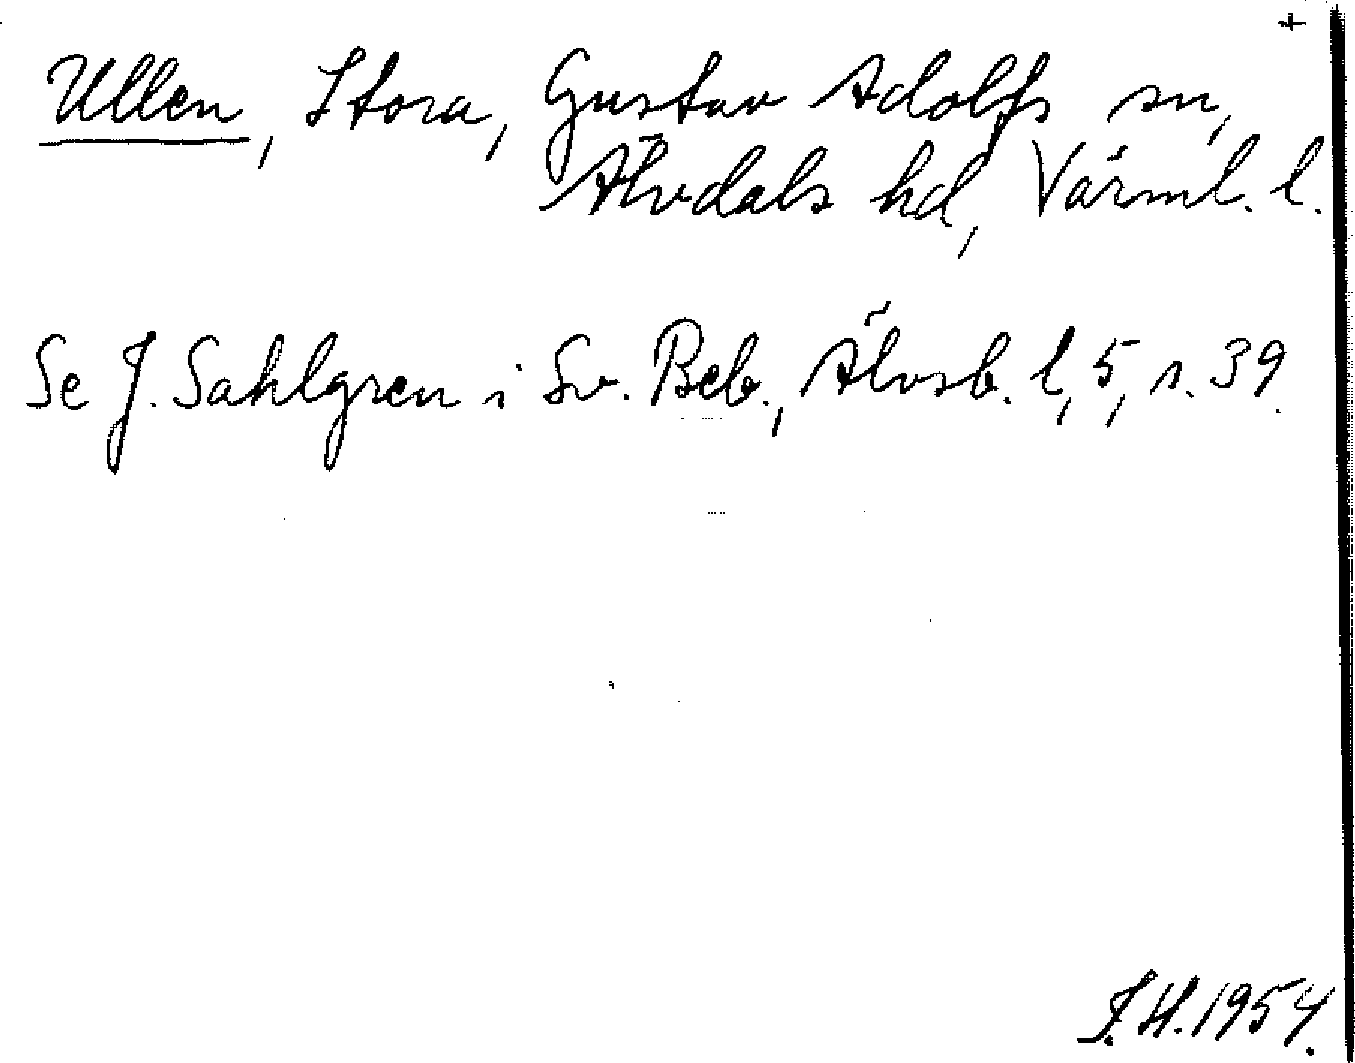 +
Ullen, Stora, Gustav Adolfs sn,
Älvdals hd, Värml. l.
Se J. Sahlgren i Sv. Beb., Älvsb. l, 5, s. 39.
J.H. 1954.